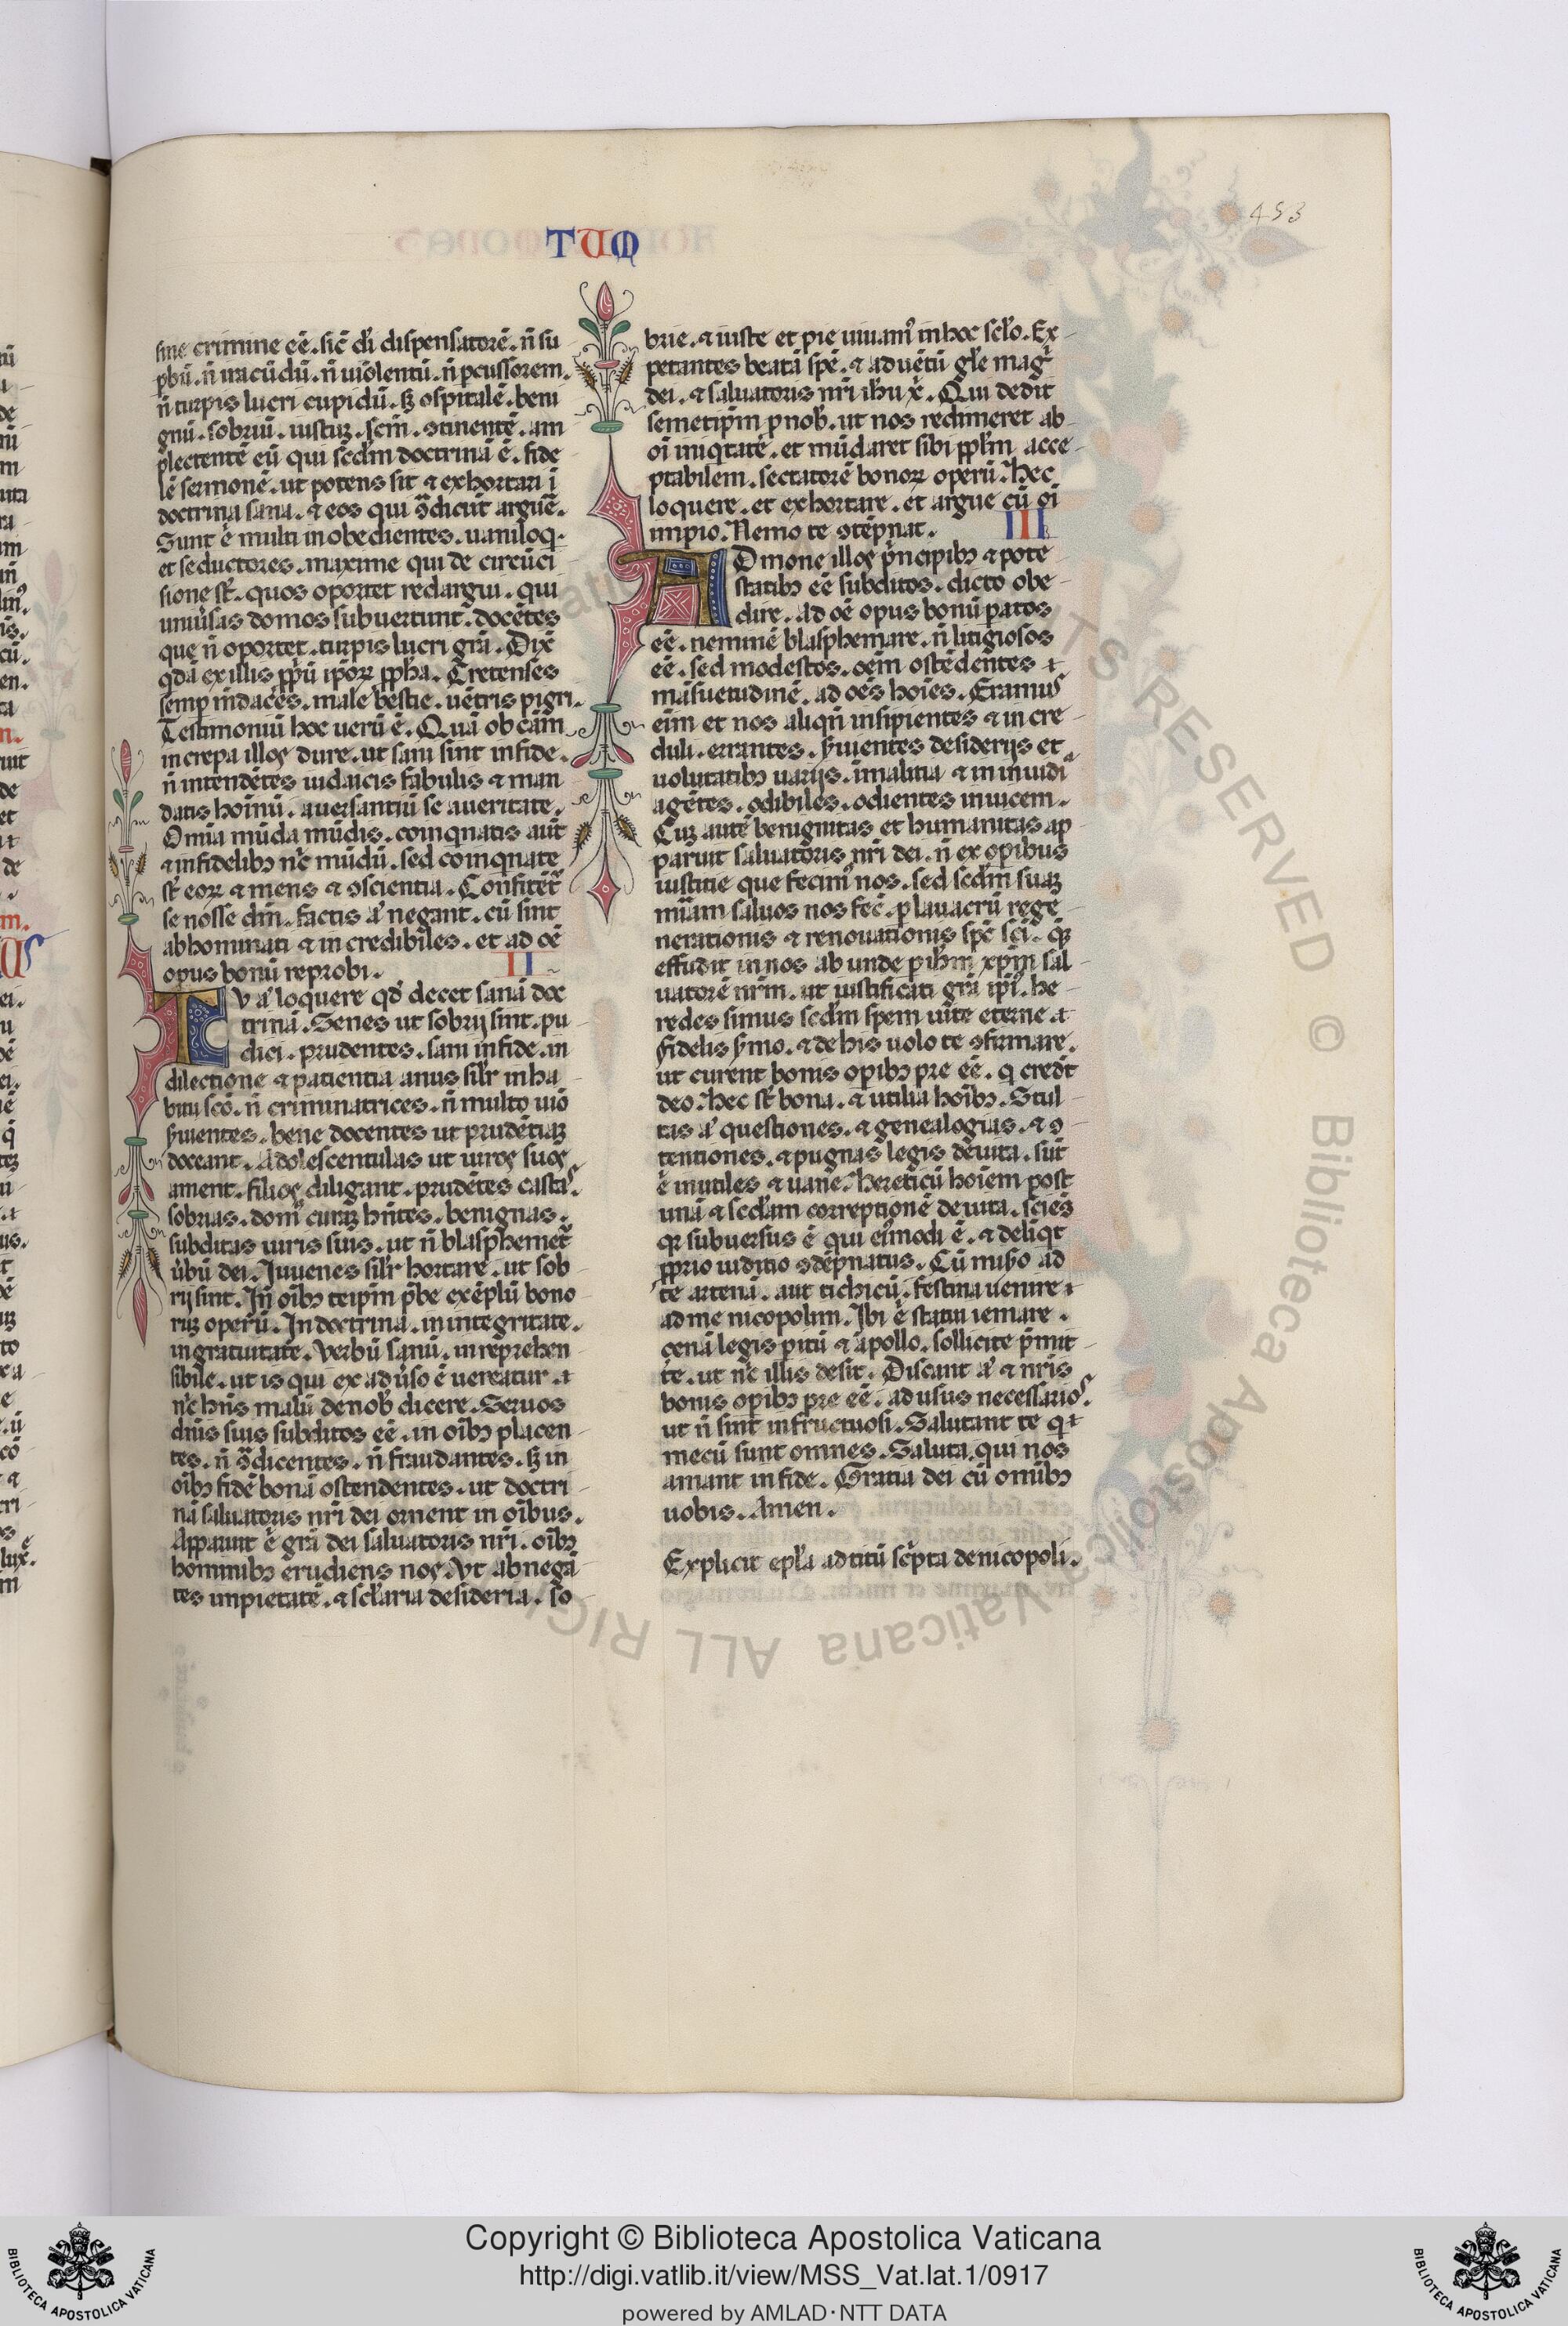 453
TUM
sine crimine eē. sic̄ dī dispensatorē. n̄ su
pbū. n̄ iracūdū. n̄ uiolentū. n̄ pcussorem.
n̄ turpis lucri cupidū. sꝫ ospitalē. beni
gnū. sobriū. iustuꝫ. scm̄. ↄtinentē. am
plectentē eū qui scd̄m doctrinā ē. fide
lē sermonē. ut potens sit ⁊ exhortari ī
doctrina sana. ⁊ eos qui ↄ̄dicūt arguē̄.
Sunt ē multi inobedientes. uaniloq.
et seductores. maxime qui de circūci
sione st̄. quos oportet redargui. qui
uniūsas domos subuertunt. docētes
que n̄ oportet. turpis lucri grā. Dixē
qdā ex illis ꝓpū ip̄oꝝ ꝓpha. Cretenses
semp m̄daces. male bestie. uētris pigri.
Testimoniū hoc uerū ē. Quā ob cām
increpa illos dure. ut sani sint infide.
n̄ intendētes iudaicis fabulis ⁊ man
datis hoīnū. auersantiū se aueritate.
Omīa mūda mūdis. coinqnatis aūt
⁊ infidelibꝫ nc̄ mūdū. sed coinqnate
st̄ eoꝝ ⁊ mens ⁊ ↄscientia. Confitēt̄
se nosse dm̄. factis a᷒ negant. cū sint
abhominati ⁊ incredibiles. et ad oē
opus bonū reprobi. II
Tv a᷒ loquere qd̄ decet sanā doc
trinā. Senes ut sobrij sint. pu
dici. prudentes. sani infide. in
dilectione ⁊ patientia anus silr̄ inha
bitu scō. n̄ criminatrices. n̄ multo uīo
s̄uientes. bene docentes ut prudētiaꝫ
doceant. Adolescentulas ut uiros suos
ament. filios diligant. prudētes castas.
sobrias. dom᷒ curāꝫ hn̄tes. benignas.
subditas uiris suis. ut n̄ blasphemet̄
ūbū dei. Juuenes silr̄ hortare. ut sob
rij sint. In oībꝫ teip̄m p̄be exēplū bono
ruꝫ operū. In doctrina. in integritate.
in grauitate. Verbū sanū. inreprehen
sibile. ut is qui ex adūso ē uereatur.
nc̄ hn̄s malū denob̄ dicere. Seruos
dn̄is suis subditos eē. in oībꝫ placen
tes. n̄ ↄ̄dicentes. n̄ fraudantes. sꝫ in
oībꝫ fidē bonā ostendentes. ut doctri
nā saluatoris nr̄i dei ornent in oībus.
Apparuit ē grā dei saluatoris nr̄i. oībꝫ
hominibꝫ erudiens nos. Vt abnegā
tes impietatē. ⁊ sclaria desideria. so
brie. ⁊ iuste et pie uiuam᷒ in hoc sclo. Ex
pectantes beatā spē. ⁊ aduētū gle maḡ
dei. ⁊ saluatoris nr̄i ih̄u x̄. Qui dedit
semetip̄m p nob̄. ut nos redimeret ab
oī iniqtatē. et mūdaret sibi ppl̄m acce
ptabilem. sectatorē bonoꝝ operū. Hec
loquere. et exhortare. et argue cū oī
impio. Nemo te ↄtēpnat. III
ADmone illos p̄ncipibꝫ ⁊ pote
statibꝫ eē subditos. dicto obe
dire. Ad oē opus bonū patos
eē. neminē blasphemare. n̄ litigiosos
eē. sed modestos. oēm ostēdentes
māsuetudinē. ad oēs hoīes. Eramus
eīm et nos aliqn̄ insipientes ⁊ incre
duli. errantes. s̄uientes desiderijs et
uolutatibꝫ uarijs. imalitia ⁊ in inuidia
agētes. odibiles. odientes inuicem.
Cuꝫ autē benignitas et humanitas ap
paruit saluatoris nr̄i dei. n̄ ex opibus
iustitie que fecim᷒ nos. sed scd̄m suaꝫ
mīam saluos nos fec̄. p lauacrū rege
nerationis ⁊ renouationis spc̄ scī. qꝫ
effudit in nos abunde p ih̄m xp̄m sal
uatorē nr̄m. ut iustificati grā ip̄i᷒. he
redes simus scd̄m spem uite eterne.
Fidelis s̄mo. ⁊ de his uolo te ↄfirmare.
ut curent bonis opibꝫ pre eē. q credūt
deo. Hec st̄ bona. ⁊ utilia hoībꝫ. Stul
tas a᷒ questiones. ⁊ genealogias. ⁊ ↄ
tentiones. ⁊ pugnas legis deuita. sūt
ē inutiles ⁊ uane. Hereticū hoīem post
unā ⁊ scd̄am correptionē deuita. sciēs
qꝛ subuersus ē qui ei᷒modi ē. ⁊ deliqt
ꝓprio iuditio ↄdēpnatus. Cū miso ad
te artenā. aut tichicū. festina uenire
ad me nicopolim. Ibi ē statui iemare.
cenā legis pitū ⁊ apollo. sollicite p̄mit
te. ut nc̄ illis desit. Discant a᷒ ⁊ nr̄is
bonis opibꝫ pre eē. ad usus necessarios.
ut n̄ sint infructuosi. Salutant te q
mecū sunt omnes. Saluta. qui nos
amant in fide. Gratia dei cū omībꝫ
uobis. Amen.
Explicit epl̄a ad titū sc̄pta de nicopoli.
Copyright © Biblioteca Apostolica Vaticana
http://digi.vatlib.it/view/MSS_Vat.lat.1/0917
powered by AMLAD·NTT DATA
BIBLIOTECA APOSTOLICA VATICANA
BIBLIOTECA APOSTOLICA VATICANA
Biblioteca Apostolica Vaticana ALL RIGHTS RESERVED ©